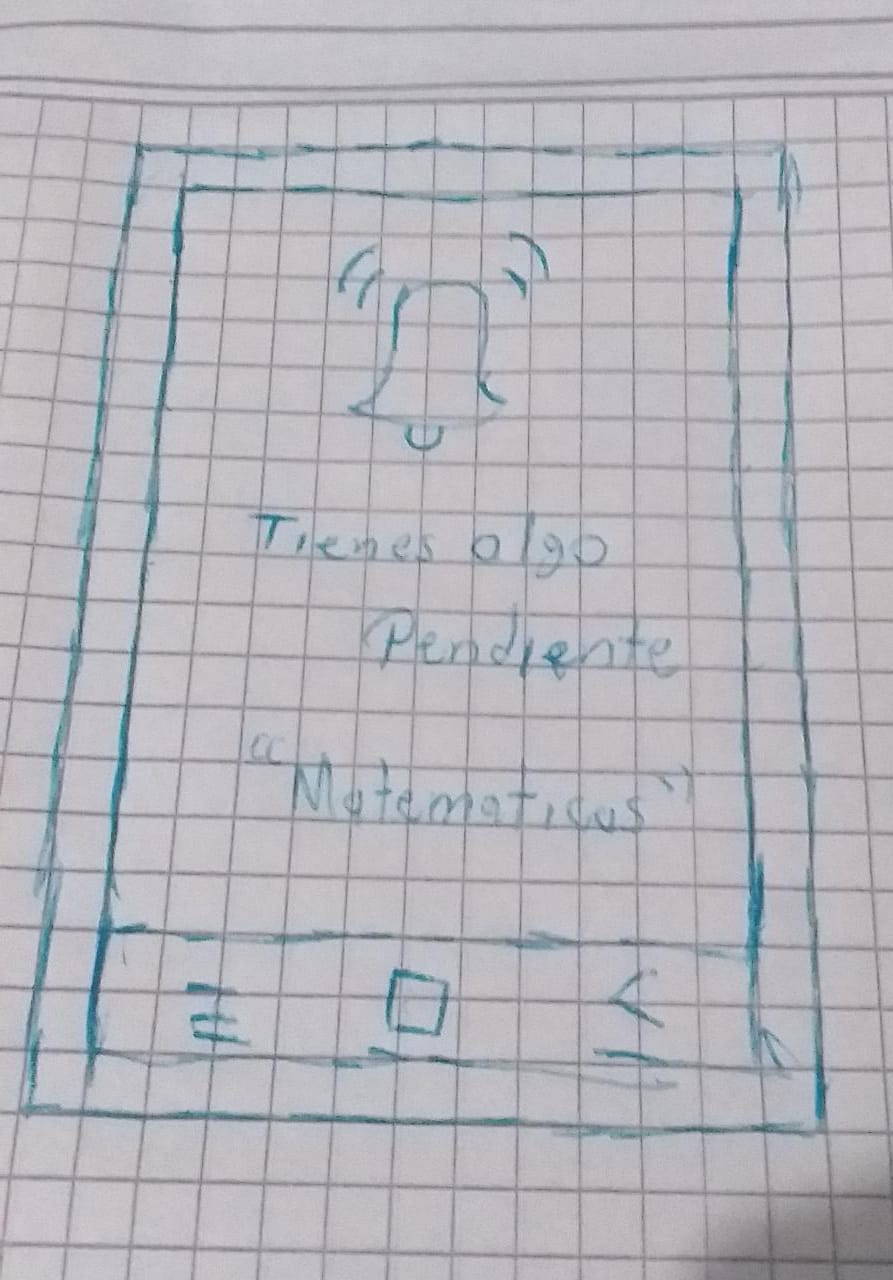 Tienes algo
Pendiente
“Matematicas”